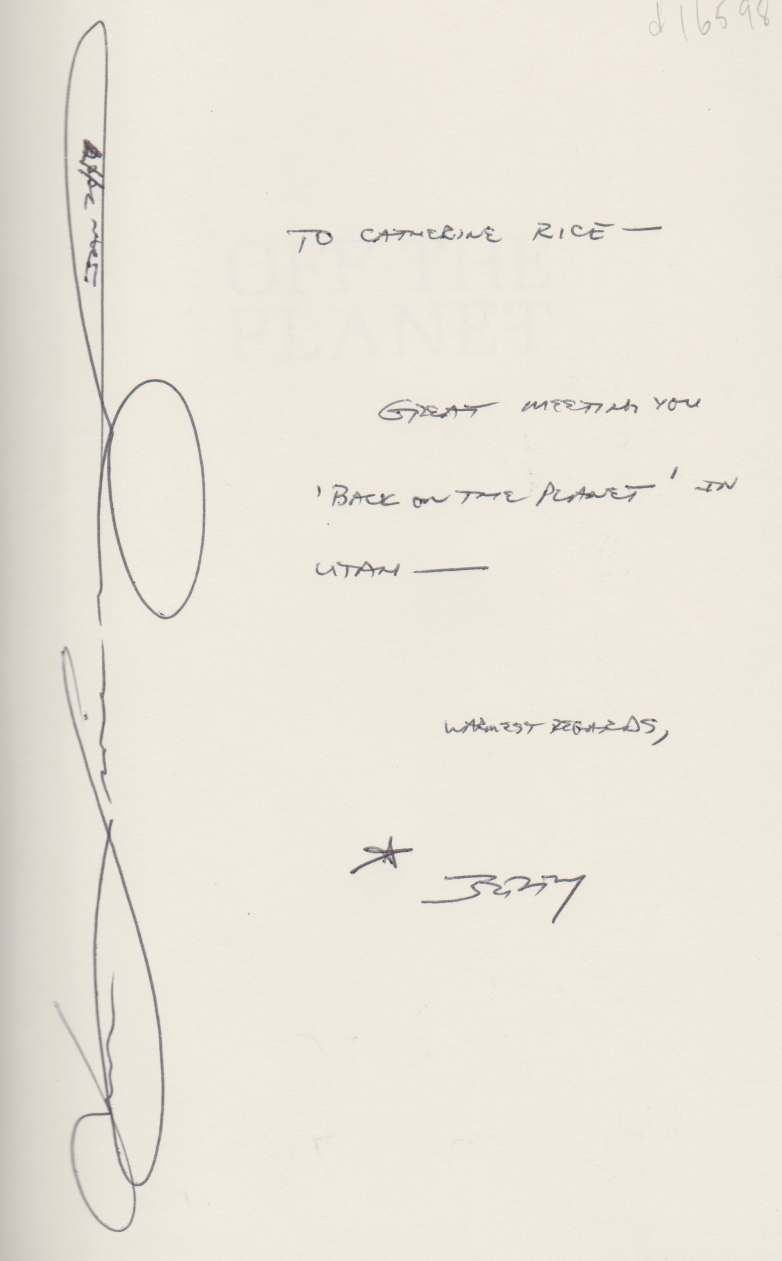 d16598
TO CATHERINE RICE —
OFF THE
PLANET
GREAT MEETING YOU
'BACK ON THE PLANET' IN
UTAH —
WARMEST REGARDS,
JERRY